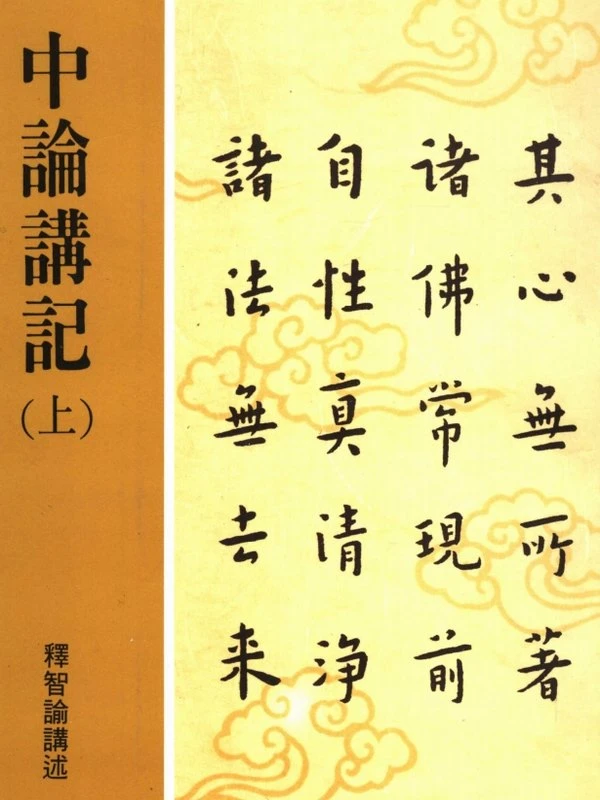 中論講記
（上）
釋智諭講述
其心無所著
诸佛常現前
自性真清浄
諸法無去来